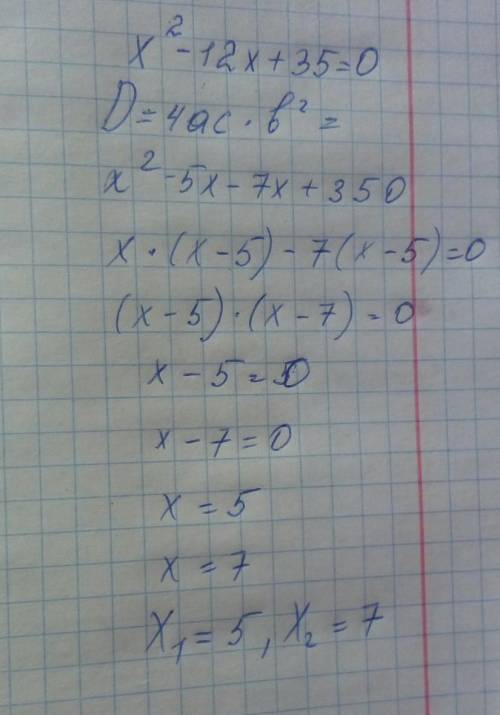 x² - 12x + 35 = 0
D = 4ac · b² =
x² - 5x - 7x + 350
x · (x - 5) - 7(x - 5) = 0
(x - 5) · (x - 7) = 0
x - 5 = 0
x - 7 = 0
x = 5
x = 7
X₁ = 5, X₂ = 7